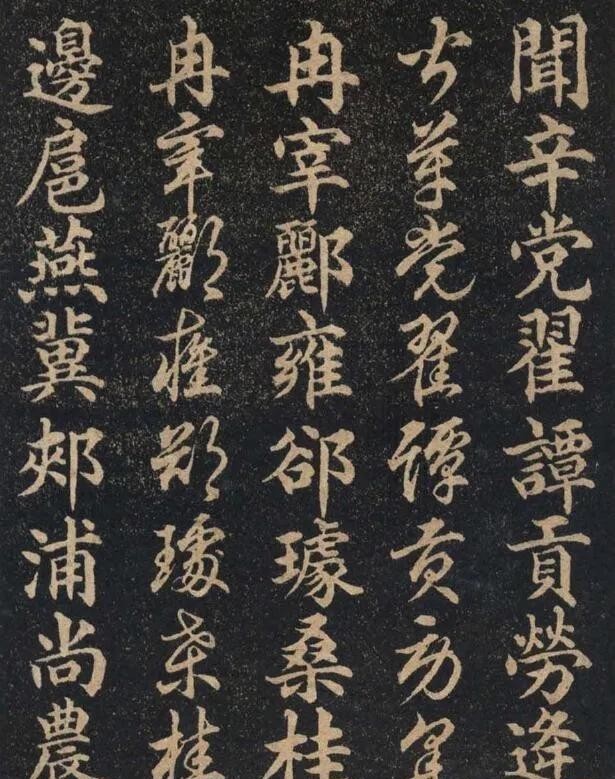 聞辛党翟譚貢勞逄
聞莘党翟譚貢勞逄
冉宰酈雍郤璩桑桂
冉宰酈雍郤璩桑桂
邊扈燕冀郟浦尚農